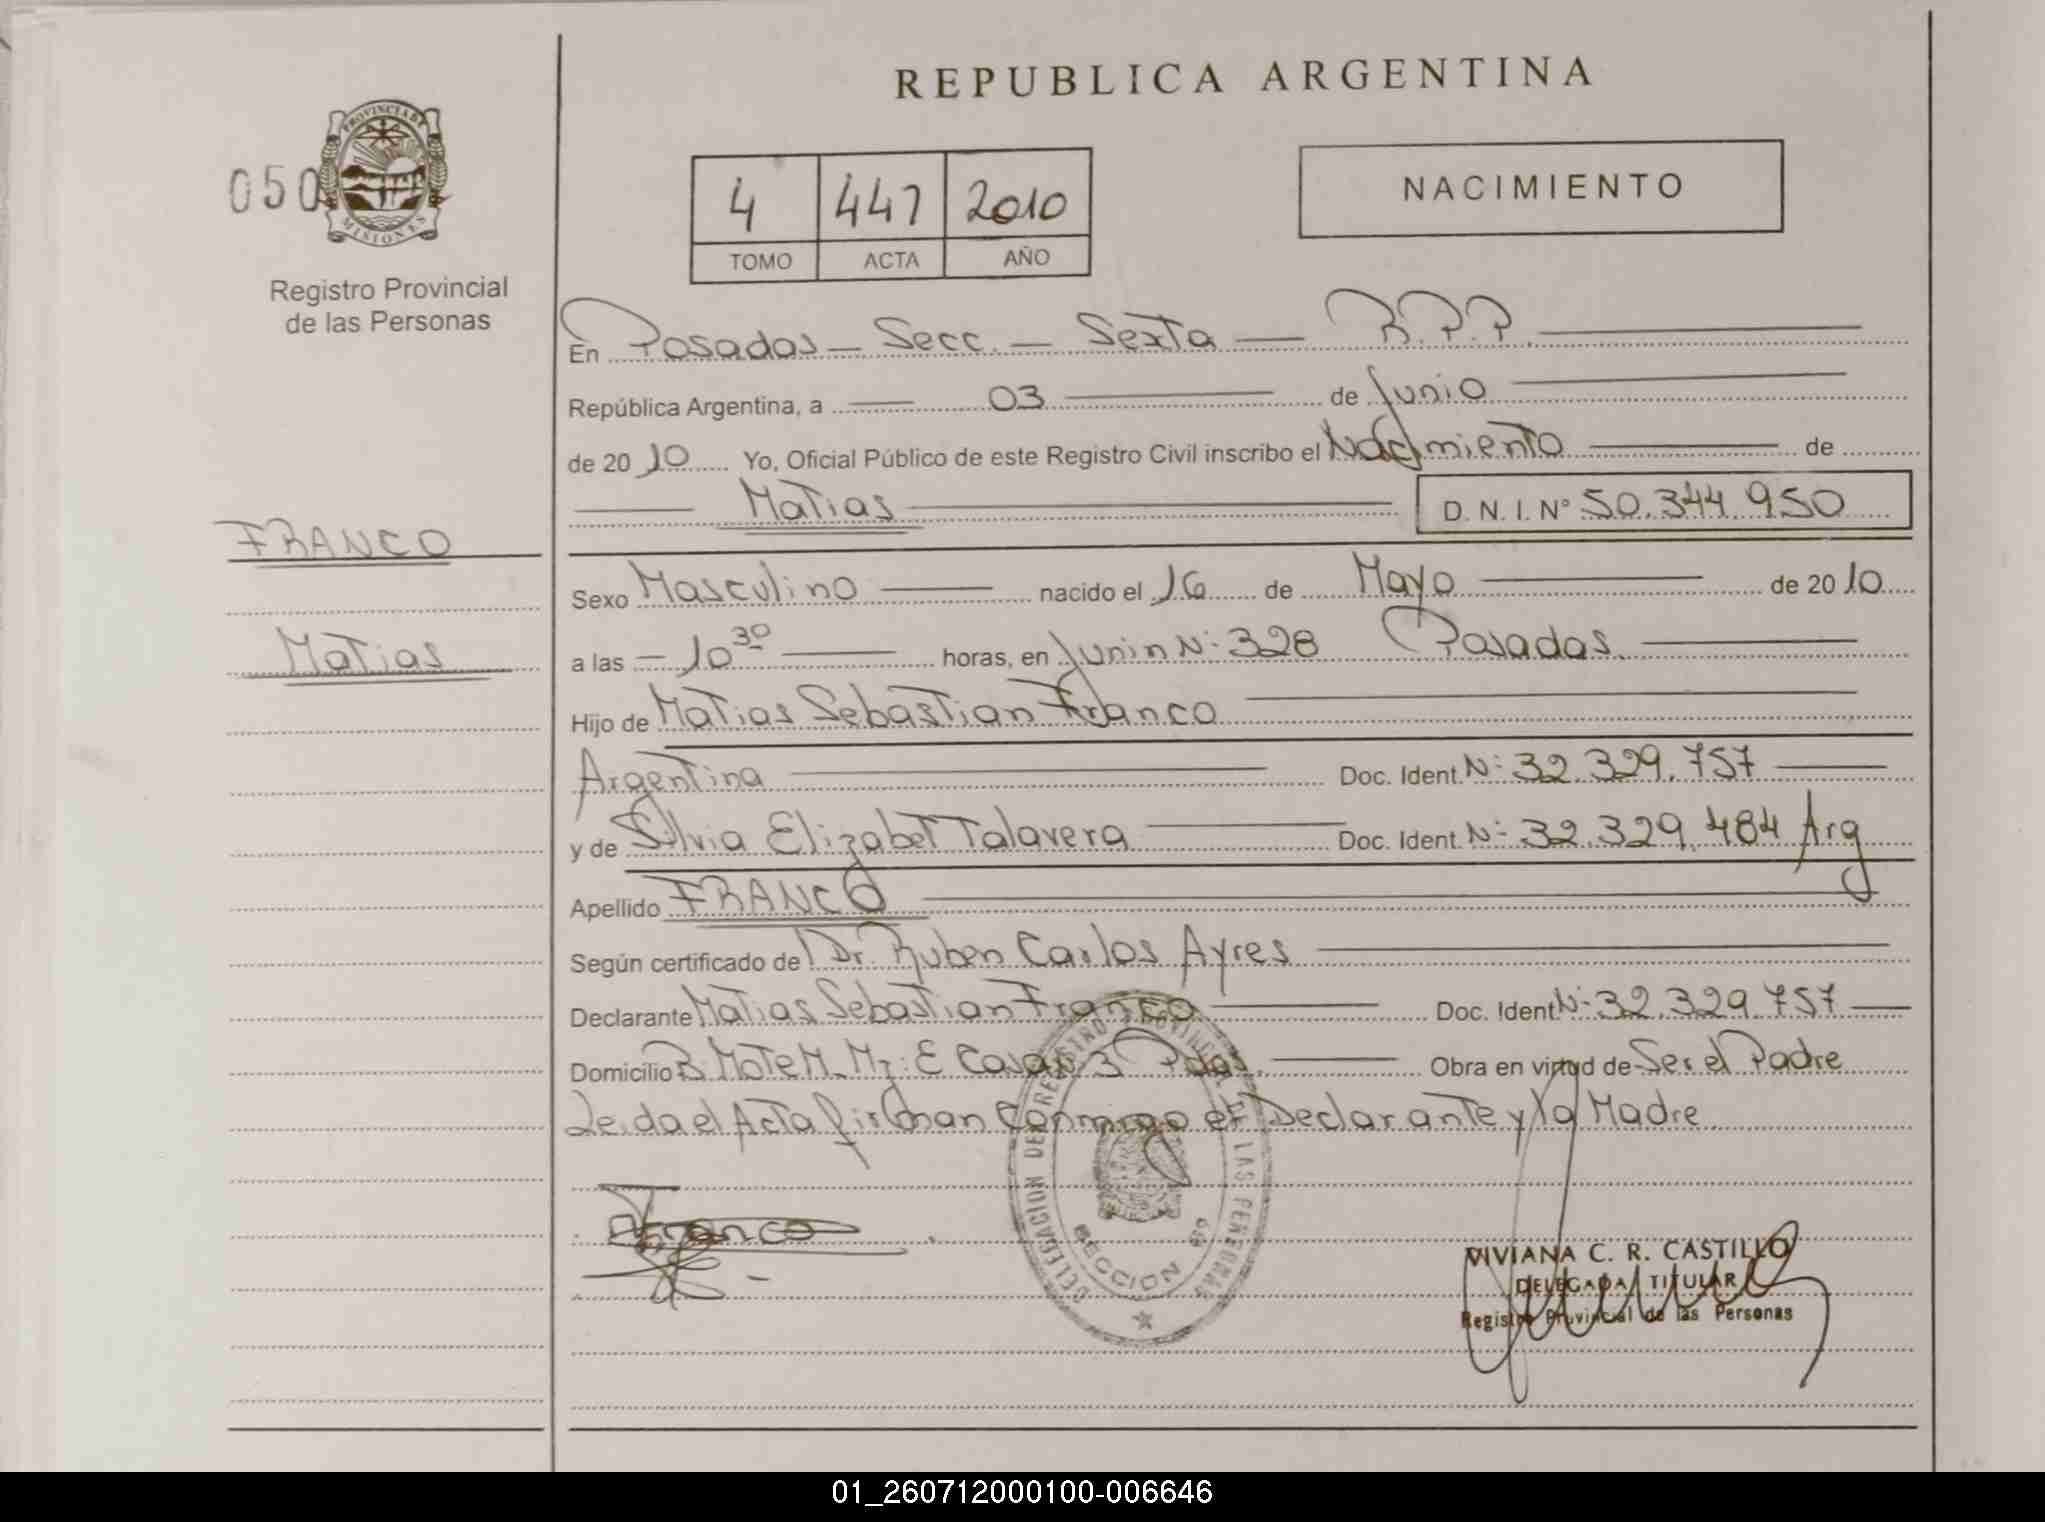 REPUBLICA ARGENTINA
PROVINCIA DE
MISIONES
050
Registro Provincial
de las Personas
4 447 2010
TOMO ACTA AÑO
NACIMIENTO
En Posadas - Secc. - Sexta - R.P.P.
República Argentina, a 03 de Junio
de 2010 Yo, Oficial Público de este Registro Civil inscribo el Nacimiento de
Matias D.N.I. Nº 50.344.950
FRANCO
Matias
Sexo Masculino nacido el 16 de Mayo de 2010
a las - 10 30 horas, en Junin Nº 328 Posadas.
Hijo de Matias Sebastian Franco
Argentina Doc. Ident. Nº 32.329.757
y de Silvia Elizabet Talavera Doc. Ident. Nº 32.329.484 Arg
Apellido FRANCO
Según certificado de Dr. Ruben Carlos Ayres
Declarante Matias Sebastian Franco Doc. Ident Nº 32.329.757
Domicilio Bº Mz: E Casa: 3 Pdas. Obra en virtud de Ser el Padre
Leida el Acta firman Conmigo el Declarante y la Madre
Franco
DELEGACION DEL REGISTRO PROVINCIAL DE LAS PERSONAS
SECCION
VIVIANA C. R. CASTILLO
DELEGADA TITULAR
Registro Provincial de las Personas
01_260712000100-006646